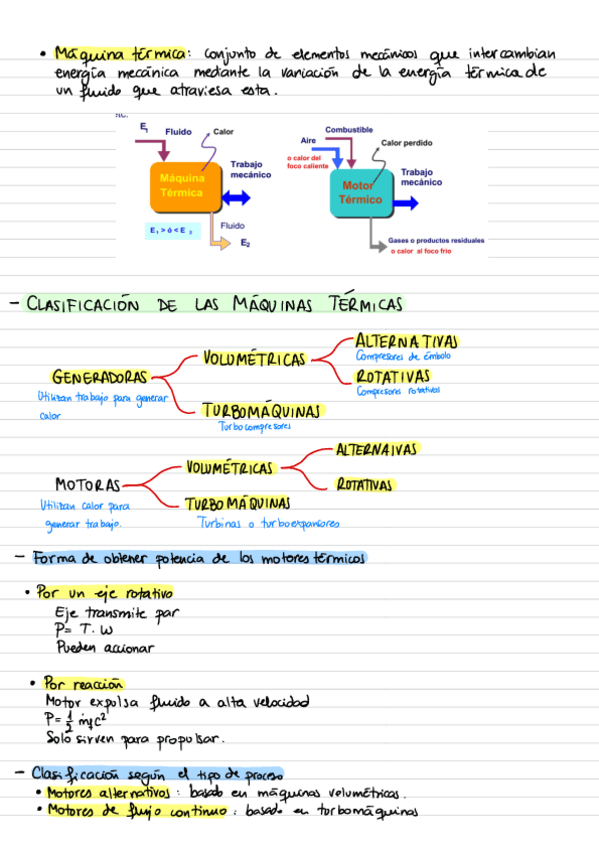 • Máquina térmica: conjunto de elementos mecánicos que intercambian
energía mecánica mediante la variación de la energía térmica de
un fluido que atraviesa esta.
E1 Fluido Calor
Máquina
Térmica
Trabajo
mecánico
E1 > ó < E 2
Fluido
E2
Combustible
Aire
Calor perdido
o calor del
foco caliente
Motor
Térmico
Trabajo
mecánico
Gases o productos residuales
o calor al foco frio
- CLASIFICACIÓN DE LAS MÁQUINAS TÉRMICAS
GENERADORAS
Utilizan trabajo para generar
calor
VOLUMÉTRICAS
ALTERNATIVAS
Compresores de émbolo
ROTATIVAS
Compresores rotativos
TURBOMÁQUINAS
Turbocompresores
MOTORAS
Utilizan calor para
generar trabajo.
VOLUMÉTRICAS
ALTERNAIVAS
ROTATIVAS
TURBOMÁQUINAS
Turbinas o turboexpansores
- Forma de obtener potencia de los motores térmicos
• Por un eje rotativo
Eje transmite par
P= T. W
Pueden accionar
• Por reacción
Motor expulsa fluido a alta velocidad
P= 1/2 ṁf c²
Solo sirven para propulsar.
- Clasificación según el tipo de proceso
• Motores alternativos: basado en máquinas volumétricas.
• Motores de flujo continuo: basado en turbomáquinas